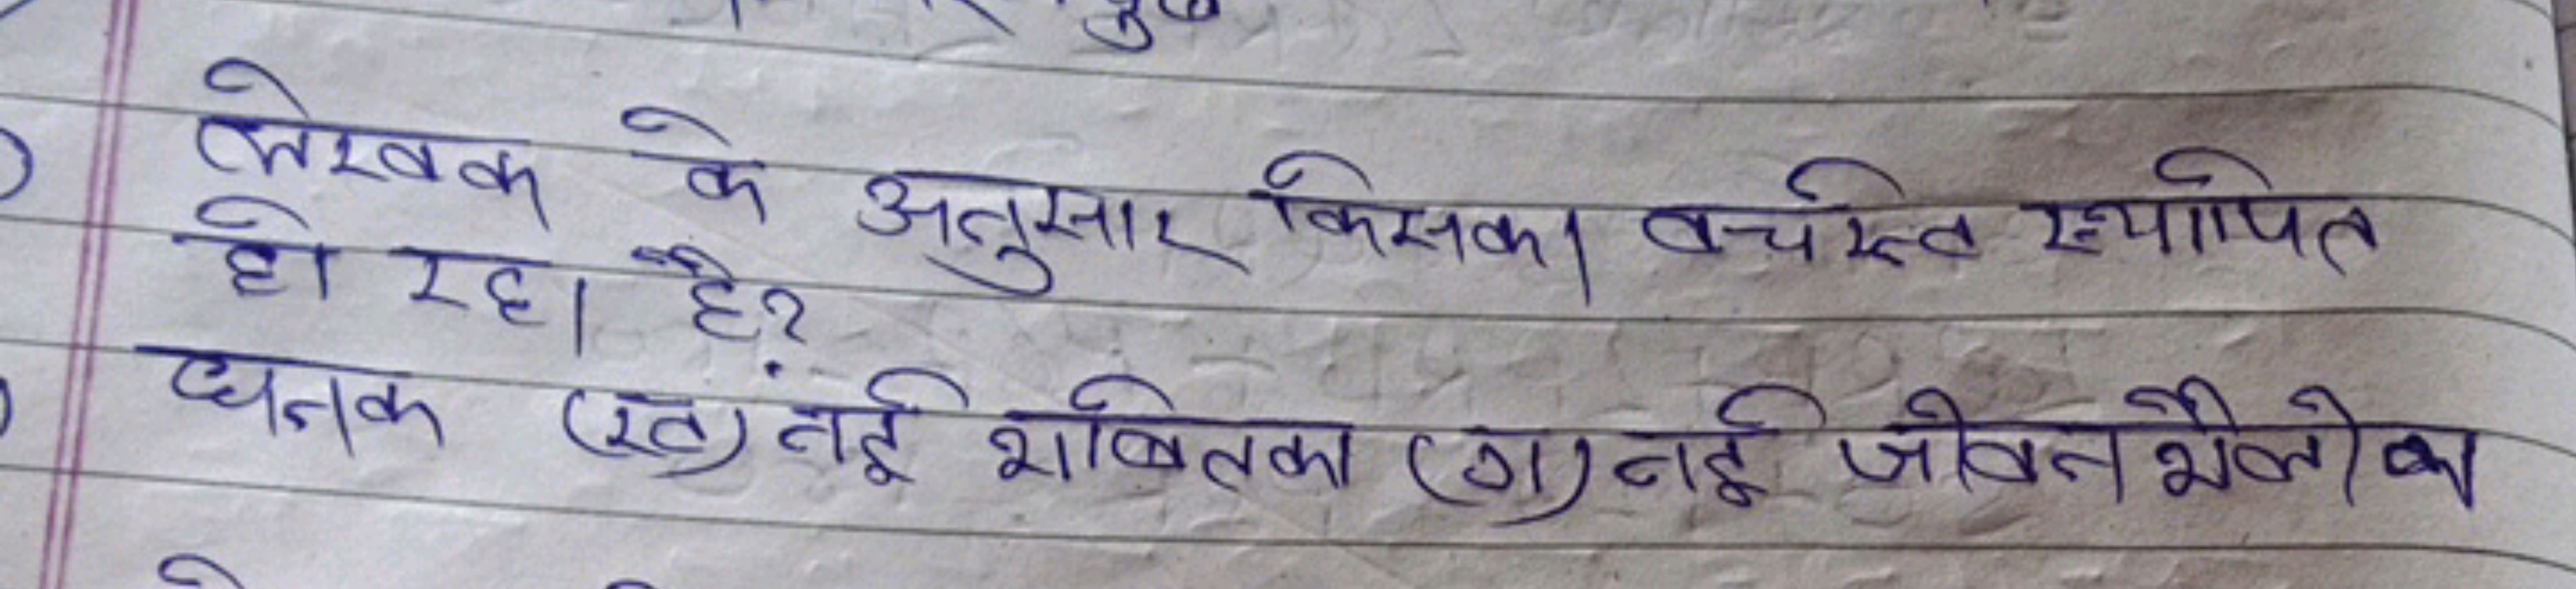 लेखक के अनुसार किसका वर्चस्व स्थापित
हो रहा है?
धनक (ख) नई शक्तिका (ग) नई जीवन शैली का